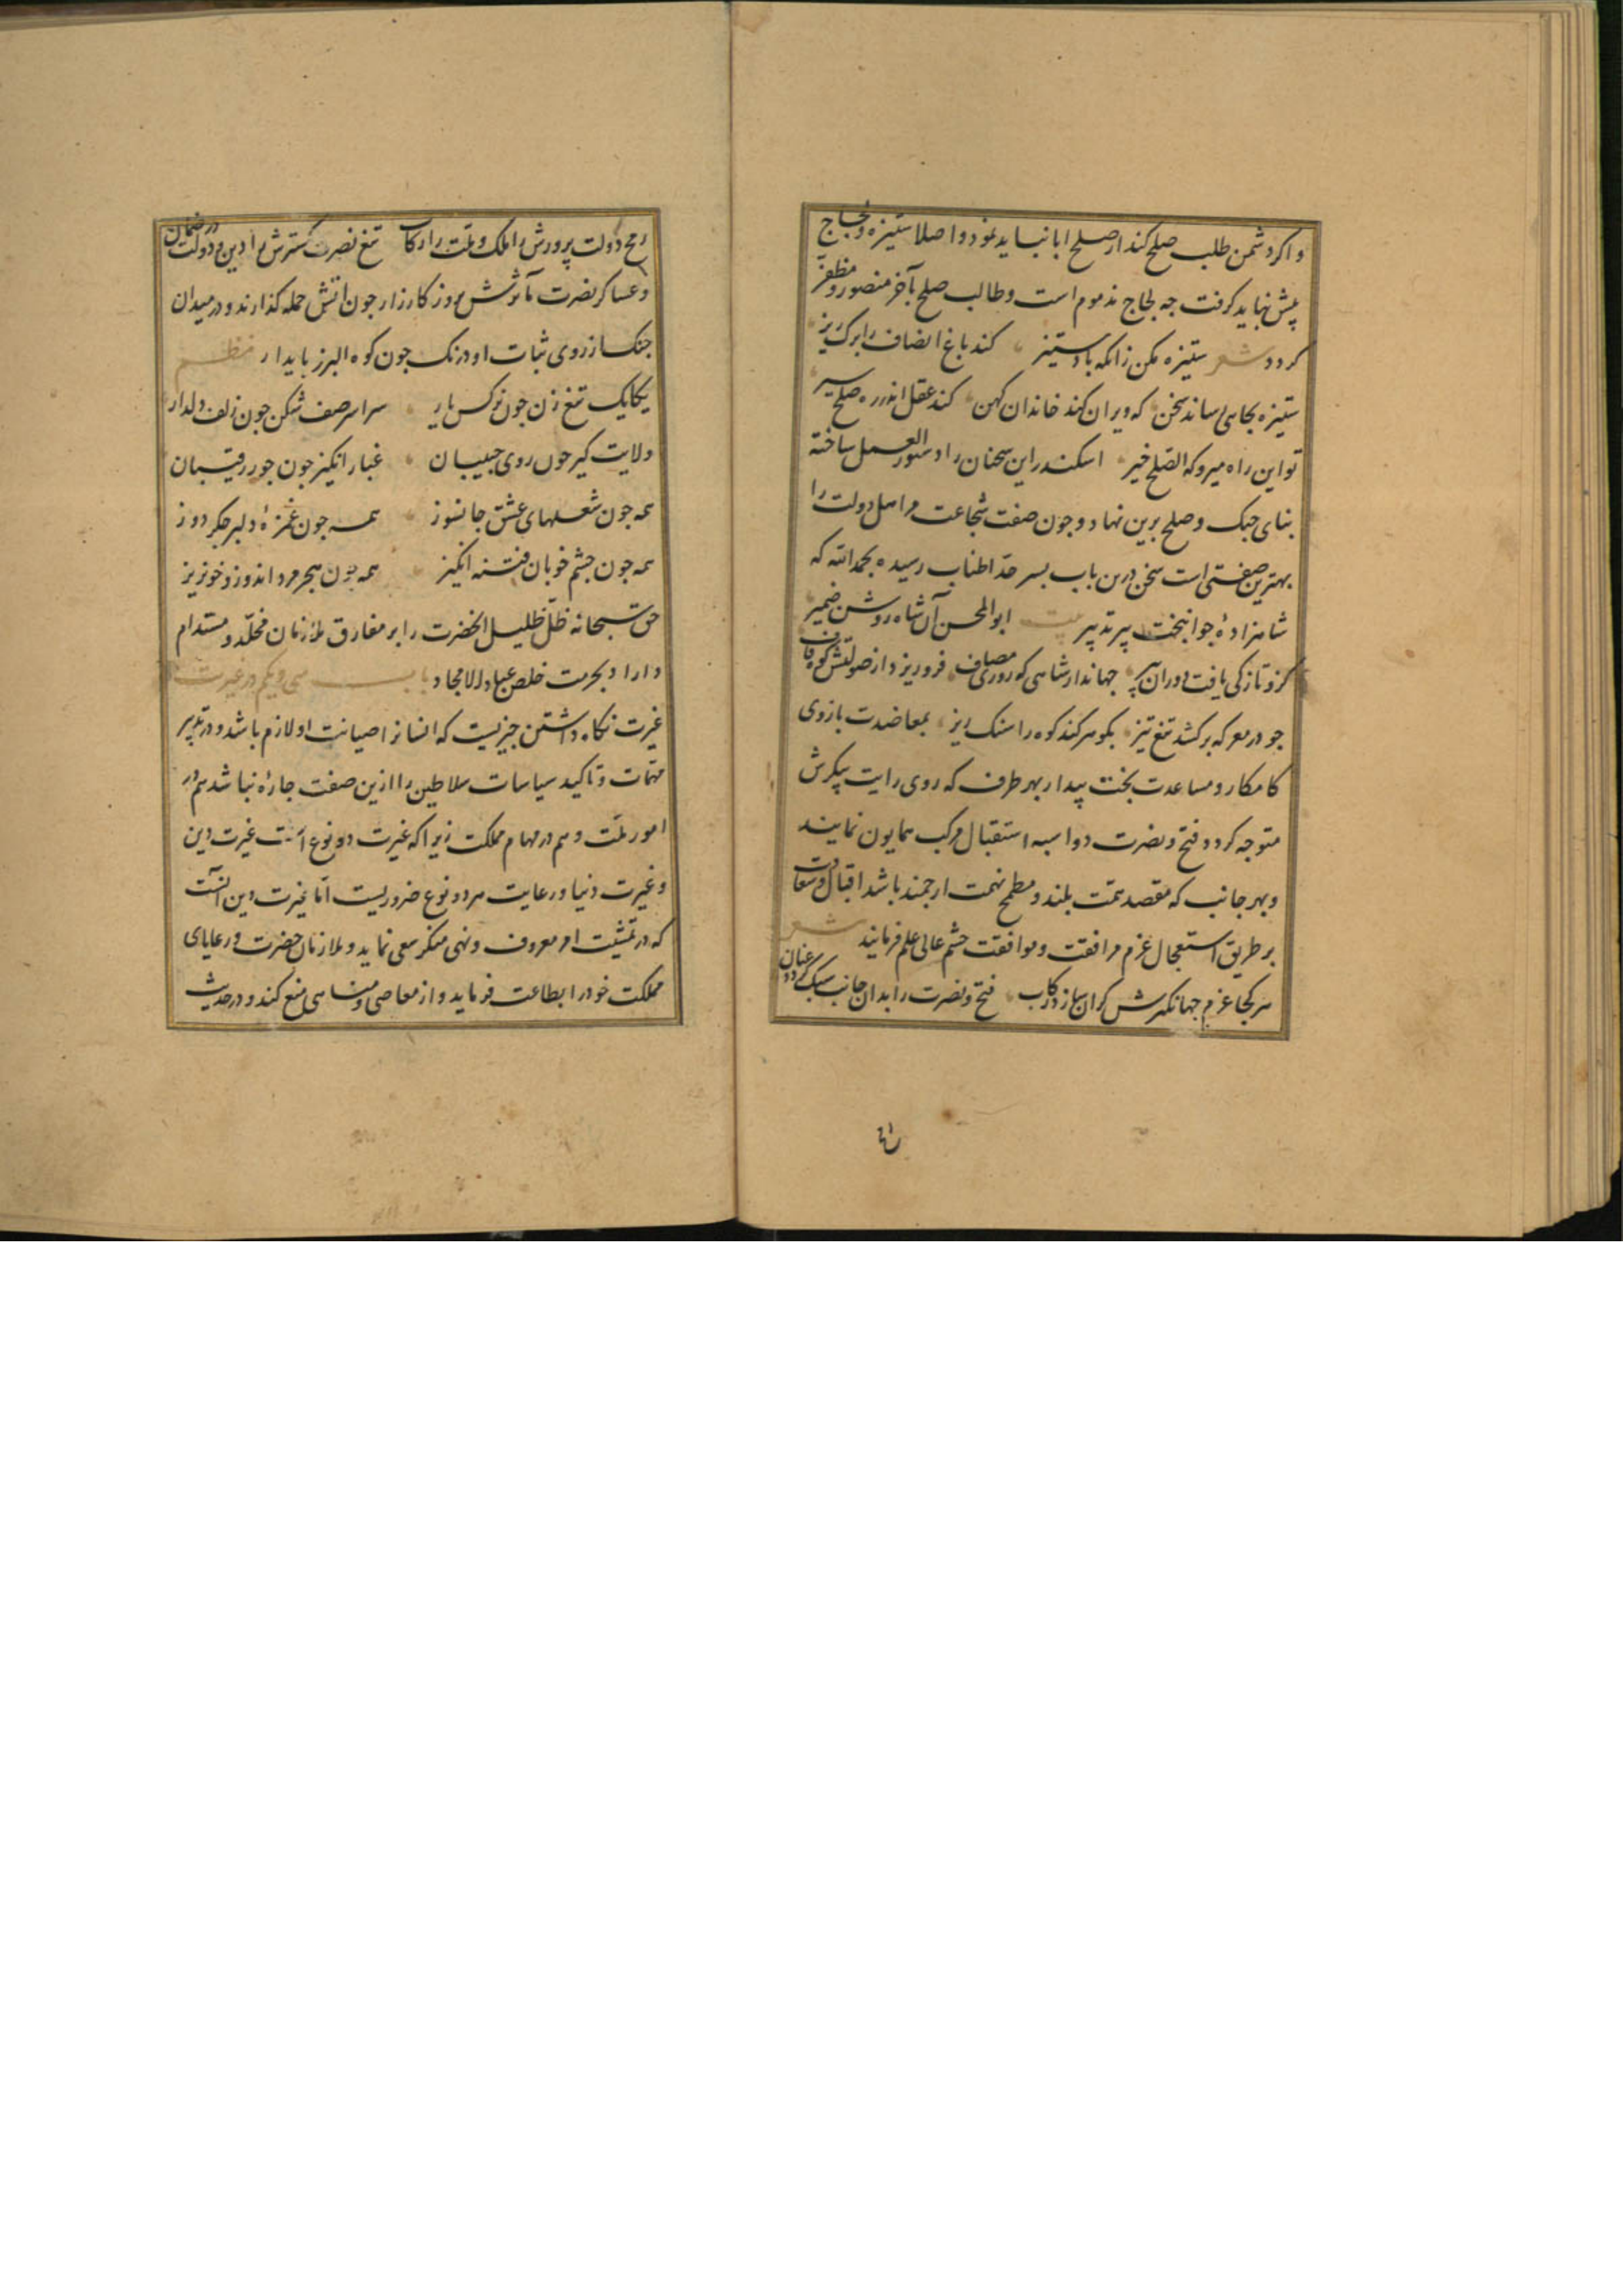 و اکر دشمن طلب صلح کند از صلح ابا نباید نمود و اصلا ستیزه و لجاج
پیش نباید کرفت جه لجاج مذموم است و طالب صلح بآخر منصور و مظفر
کردد شعر ستیزه مکن زانکه باد ستیز کند باغ انصاف را برک ریز
ستیزه بجایی رساند سخن که ویران کند خاندان کهن کند عقل اندر ره صلح سیر
تو این راه میرو که الصلح خیر اسکندر این سخنان را دستور العمل ساخته
بنای جنک و صلح برین نهاد و جون صفت شجاعت مر اهل دولت را
بهترین صفتی است سخن درین باب بسر حد اطناب رسیده بحمد الله که
شاهزادهٔ جوانبخت پیر تدبیر بیت ابو المحسن آن شاه روشن ضمیر
کزو تازکی یافت دوران پیر جهاندار شاهی که روز مصاف فرو ریزد از صولتش کوه قاف
جو در معرکه برکشد تیغ تیز بکوهر کند کوه را سنک ریز بمعاضدت بازوی
کامکار و مساعدت بخت بیدار بهر طرف که روی رایت پیکرش
متوجه کردد فتح و نصرت دو اسبه استقبال مرکب همایون نمایند
و بهر جانب که مقصد همت بلند و مطمح نهمت ارجمند باشد اقبال و سعادت
بر طریق استعجال عزم مرافقت و موافقت حشم عالی علم فرمایند شعر
هر کجا عزم جهانکیرش کران سازد رکاب فتح و نصرت را بدان جانب سبک کردد عنان
رمح دولت پرورش را ملک و ملت را رکاب تیغ نصرت کسترش را دین و دولت در ضمان
و عساکر نصرت مآثرش روز کارزار جون آتش حمله کذارند و در میدان
جنک از روی ثبات و درنک جون کوه البرز بایدار نظم
یکایک تیغ زن جون نرکس یار سراسر صف شکن جون زلف دلدار
ولایت کیر جون روی حبیبان غبار انکیز جون جور رقیبان
همه جون شعلهای عشق جانسوز همه جون غمزهٔ دلبر جکر دوز
همه جون جشم خوبان فتنه انکیز همه جون هجر مرد اندوز و خونریز
حق سبحانه ظل ظلیل الحضرت را بر مفارق ملازمان مخلد و مستدام
داراد بحرمت خلص عباده الامجاد باب سی و یکم در غیرت
غیرت نکاه داشتن جیزیست که انسانرا صیانت او لازم باشد و در تدبیر
مهمات و تاکید سیاسات سلاطین را ازین صفت جارهٔ نباشد هم در
امور ملت و هم در مهام مملکت زیرا که غیرت دو نوع است غیرت دین
و غیرت دنیا و رعایت هر دو نوع ضروریست اما غیرت دین آنست
که در تمشیت امر معروف و نهی منکر سعی نماید و ملازمان حضرت و رعایای
مملکت خود را بطاعت فرماید و از معاصی و مناهی منع کند و در حدیث